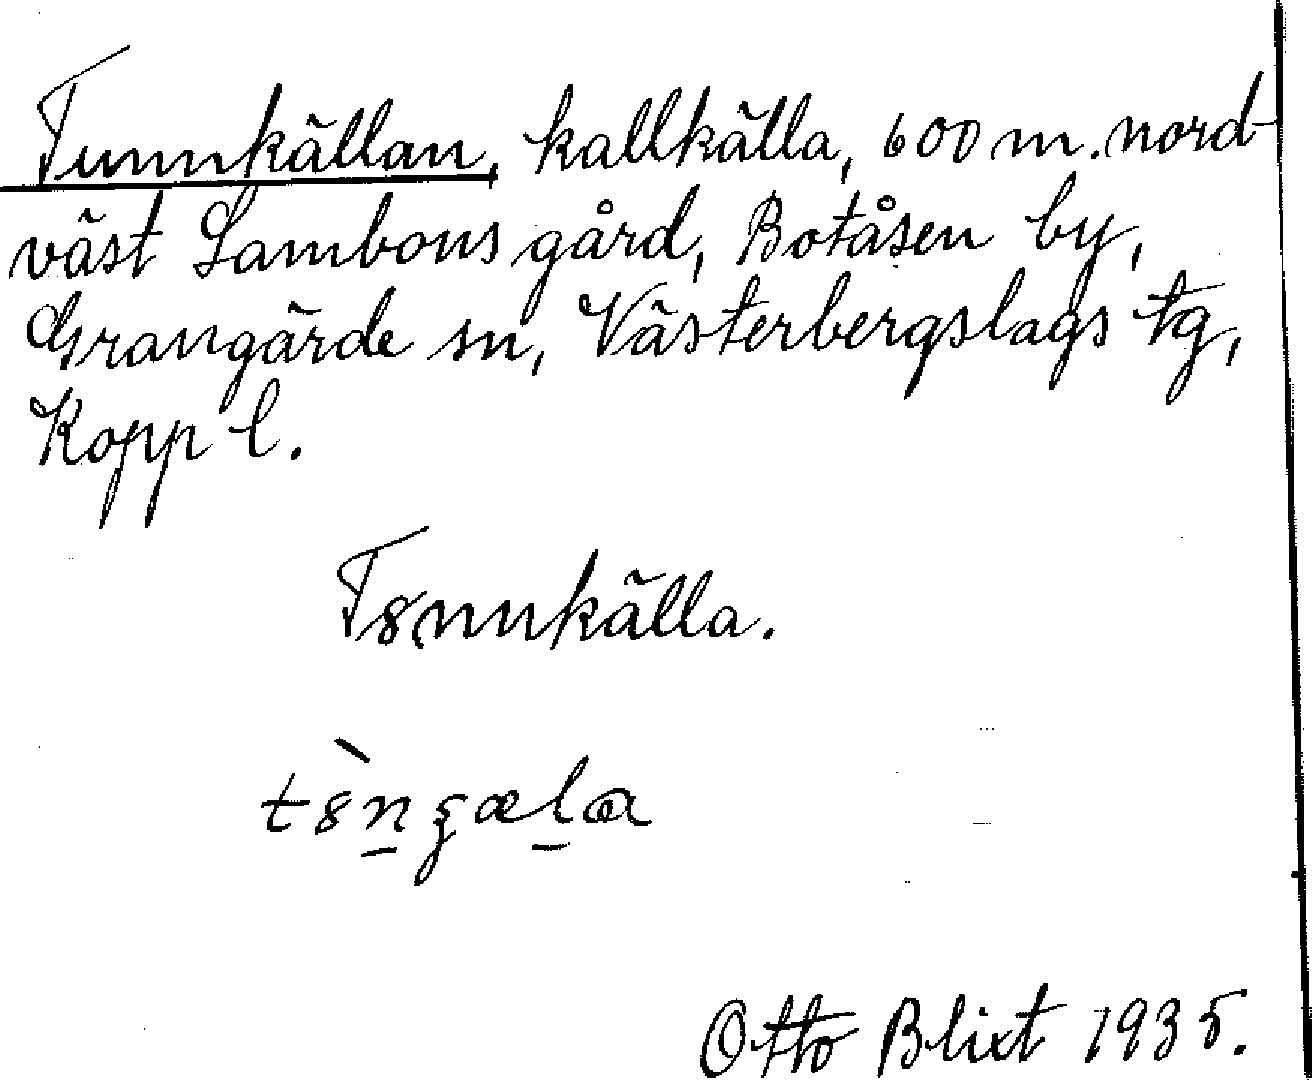 Tunnkällan, kallkälla, 600 m. nord-
väst Lambons gård, Botåsen by,
Grangärde sn, Västerbergslags tg,
Kopp l.
T8nnkälla.
t8̀n̲ʒæl̲a
Otto Blixt 1935.